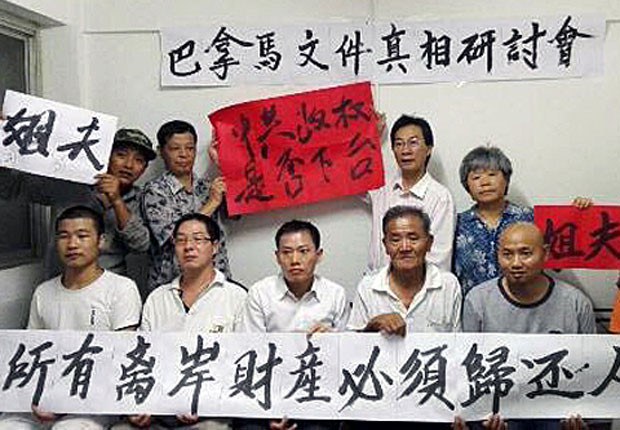 巴拿馬文件真相研討會
姐夫
中共政权
是下台
姐夫
所有离岸財產必須歸还人